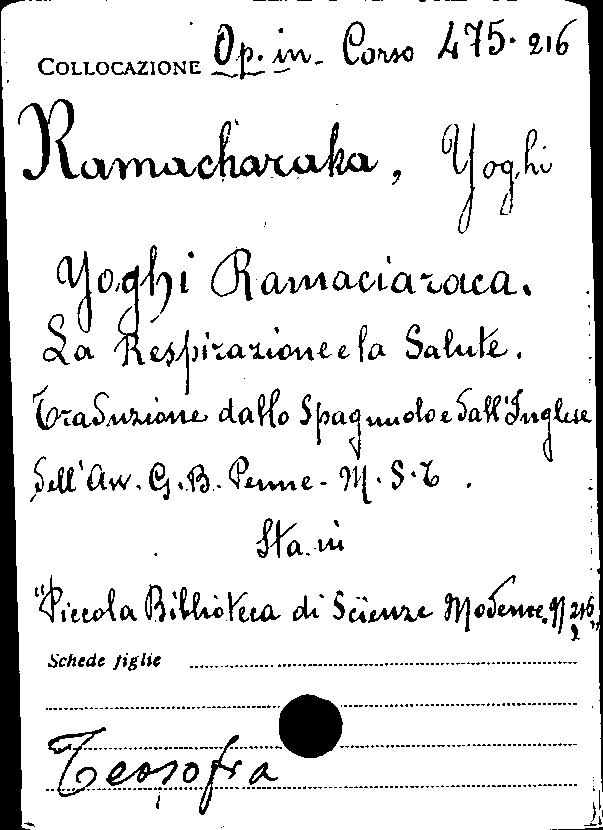 COLLOCAZIONE Op. in. Corso 475. 216
Ramacharaka, Yoghi
Yoghi Ramaciaraca.
La Respirazione e la Salute.
Traduzione dallo Spagnuolo e dall'Inglese
dell'Avv. G. B. Penne - M. S. T.
Sta in
"Piccola Biblioteca di Scienze Moderne. N 216"
Schede figlie
Teosofia